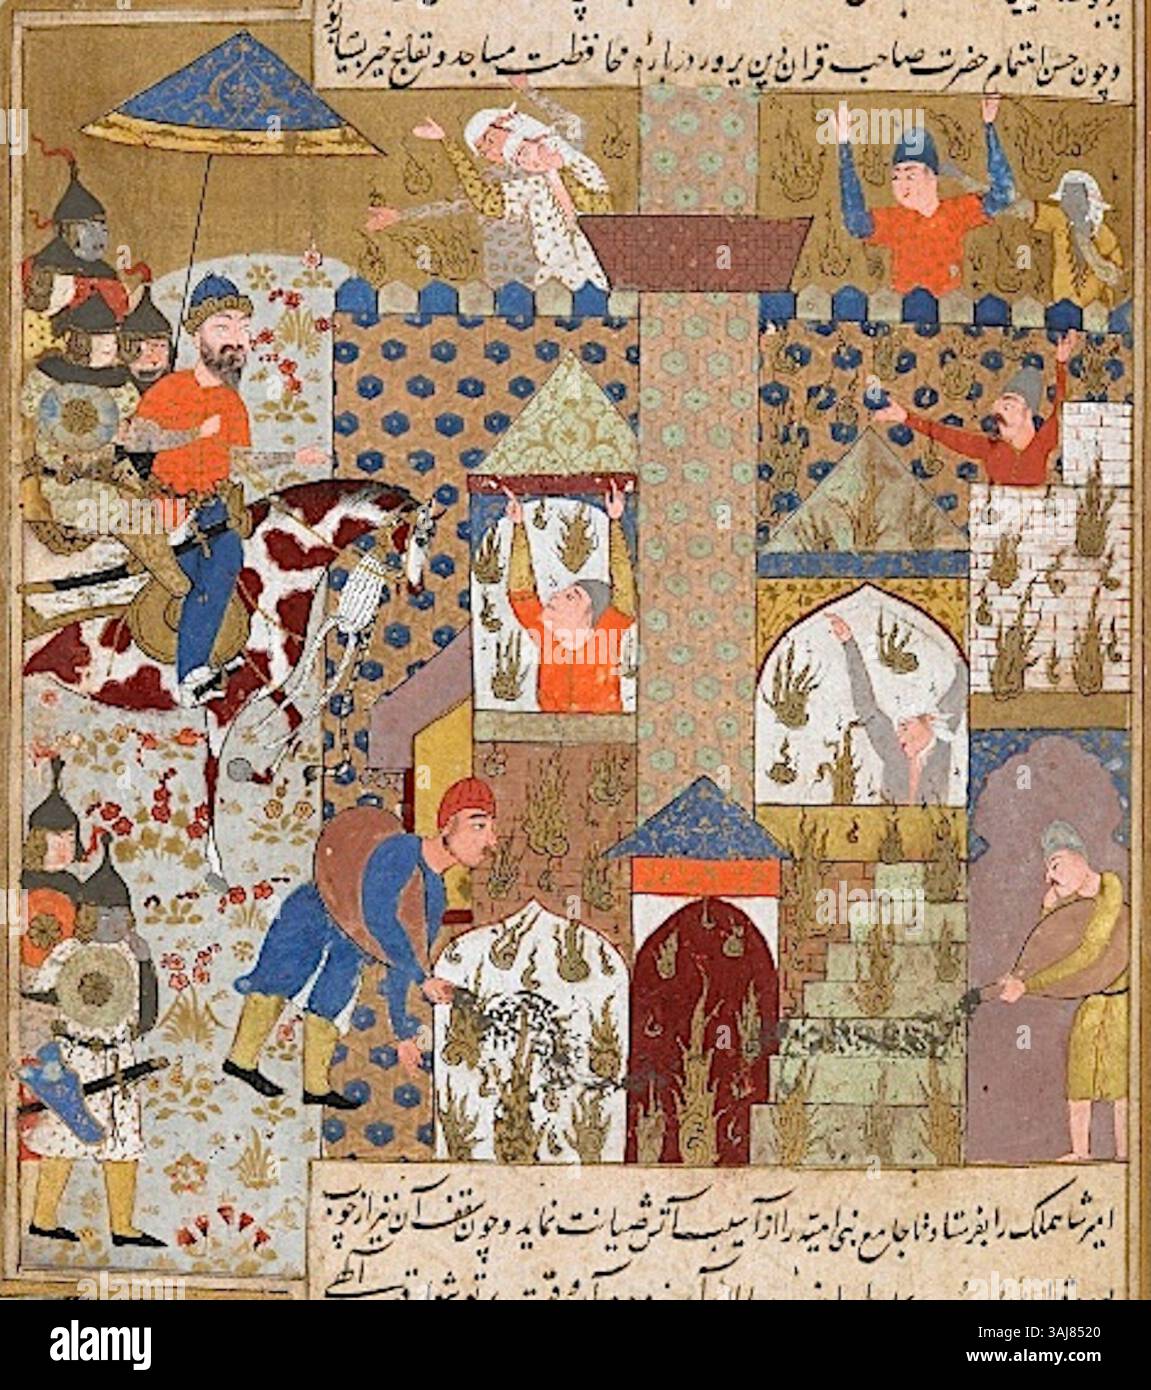 و چون حسن اهتمام حضرت صاحب قران دین پرور درباره محافظت مساجد و بقاع خیر بشابه
امیر شاهملک را بفرستاد تا جامع بنی امیه را از آسیب آتش صیانت نماید و چون سقف آن نیز از چوب
alamy
Image ID: 3AJ8520
www.alamy.com